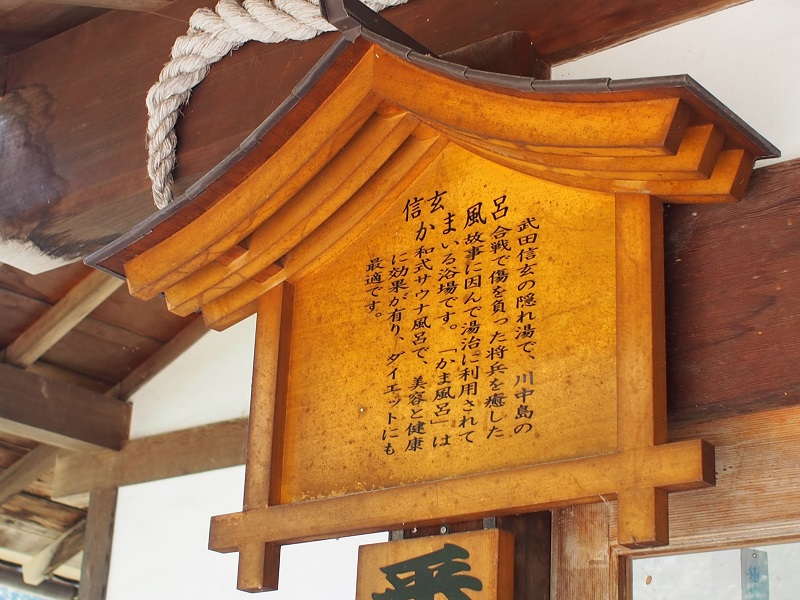 信玄かま風呂
武田信玄の隠れ湯で、川中島の
合戦で傷を負った将兵を癒した
故事に因んで湯治に利用されて
いる浴場です。「かま風呂」は
和式サウナ風呂で、美容と健康
に効果が有り、ダイエットにも
最適です。